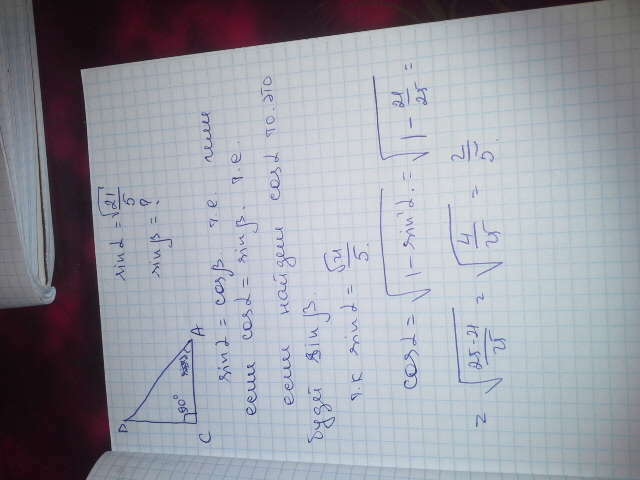 sinα = √21/5
sinβ = ?
B
90°
C
A
sinα = cosβ т.е.
если cosα = sinβ. т.е.
если найдем cosα то это
будет sinβ.
т.к sinα = √21/5.
cosα = √1 - sin²α. = √1 - 21/25 =
= √25-21/25 = √4/25 = 2/5.